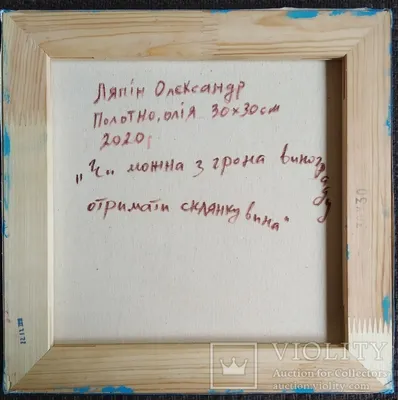 Ляпін Олександр
Полотно, олія 30х30см
2020р
„Чи можна з грона винограду
отримати склянку вина"
30*30
VIOLITY
Auction for Collectors
auction.violity.com